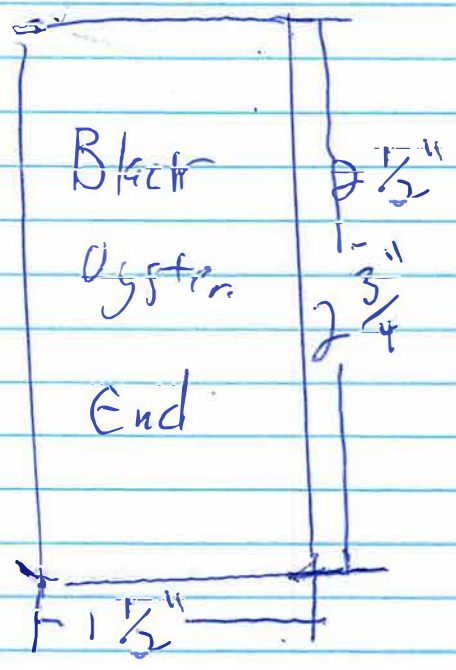 Black
Oyster
End
1/2"
2 3/4"
1 1/2"